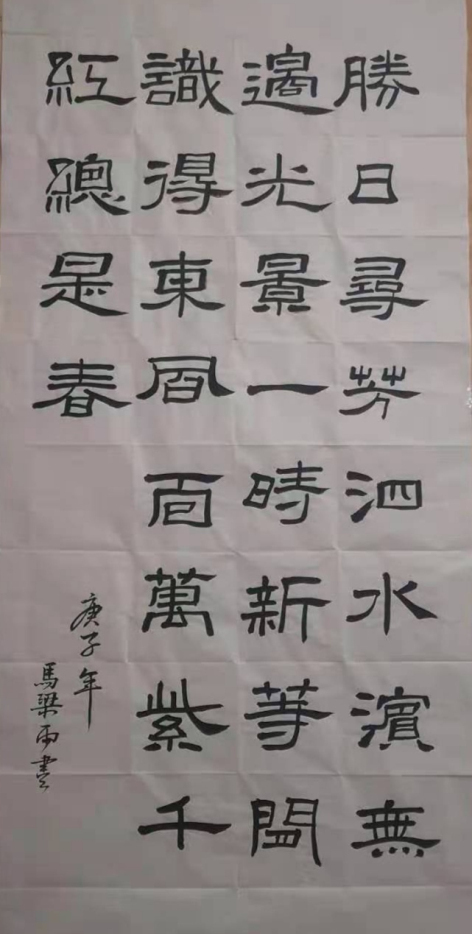 勝日尋芳泗水濱無
邊光景一時新等閒
識得東風百萬紫千
紅總是春
庚子年
馬梁雨書